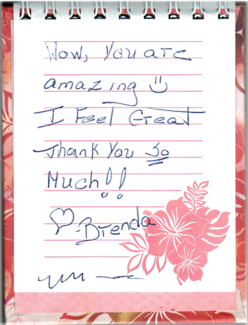 Wow, You are
amazing
I Feel Great
Thank You So
Much!!
♡-Brenda